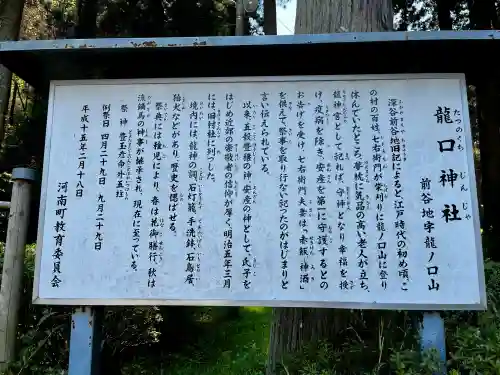 龍口神社
たつのくちじんじゃ
前谷地字龍ノ口山
深谷前谷地旧記によると、江戸時代の初め頃、こ
の村の百姓、七右衛門が柴刈りに龍ノ口山に登り
休んでいたところ、夢枕に気品の高い老人が立ち、
龍神宮として祀れば、守神となり幸福を授
け、疫病を除き、安産を第一に守護するとの
お告げを受け、七右衛門夫妻は、「赤飯、神酒」
を供えて祭事を取り行ない祀ったのがはじまりと
言い伝えられている。
以来、五穀豊穣の神、安産の神として、氏子を
はじめ近郊の崇敬者の信仰が厚く明治五年三月
には、旧村社に列した。
境内には、龍神の祠、石灯籠、手洗鉢、石鳥居、
殆火などがあり、歴史を偲ばせる。
祭典には稚児により、春は花御膳行、秋は
流鏑馬の神事が継承され、現在に至っている。
祭神 豊玉彦命外五柱
例祭日 四月二十九日 九月二十九日
平成十五年二月十八日
河南町教育委員会